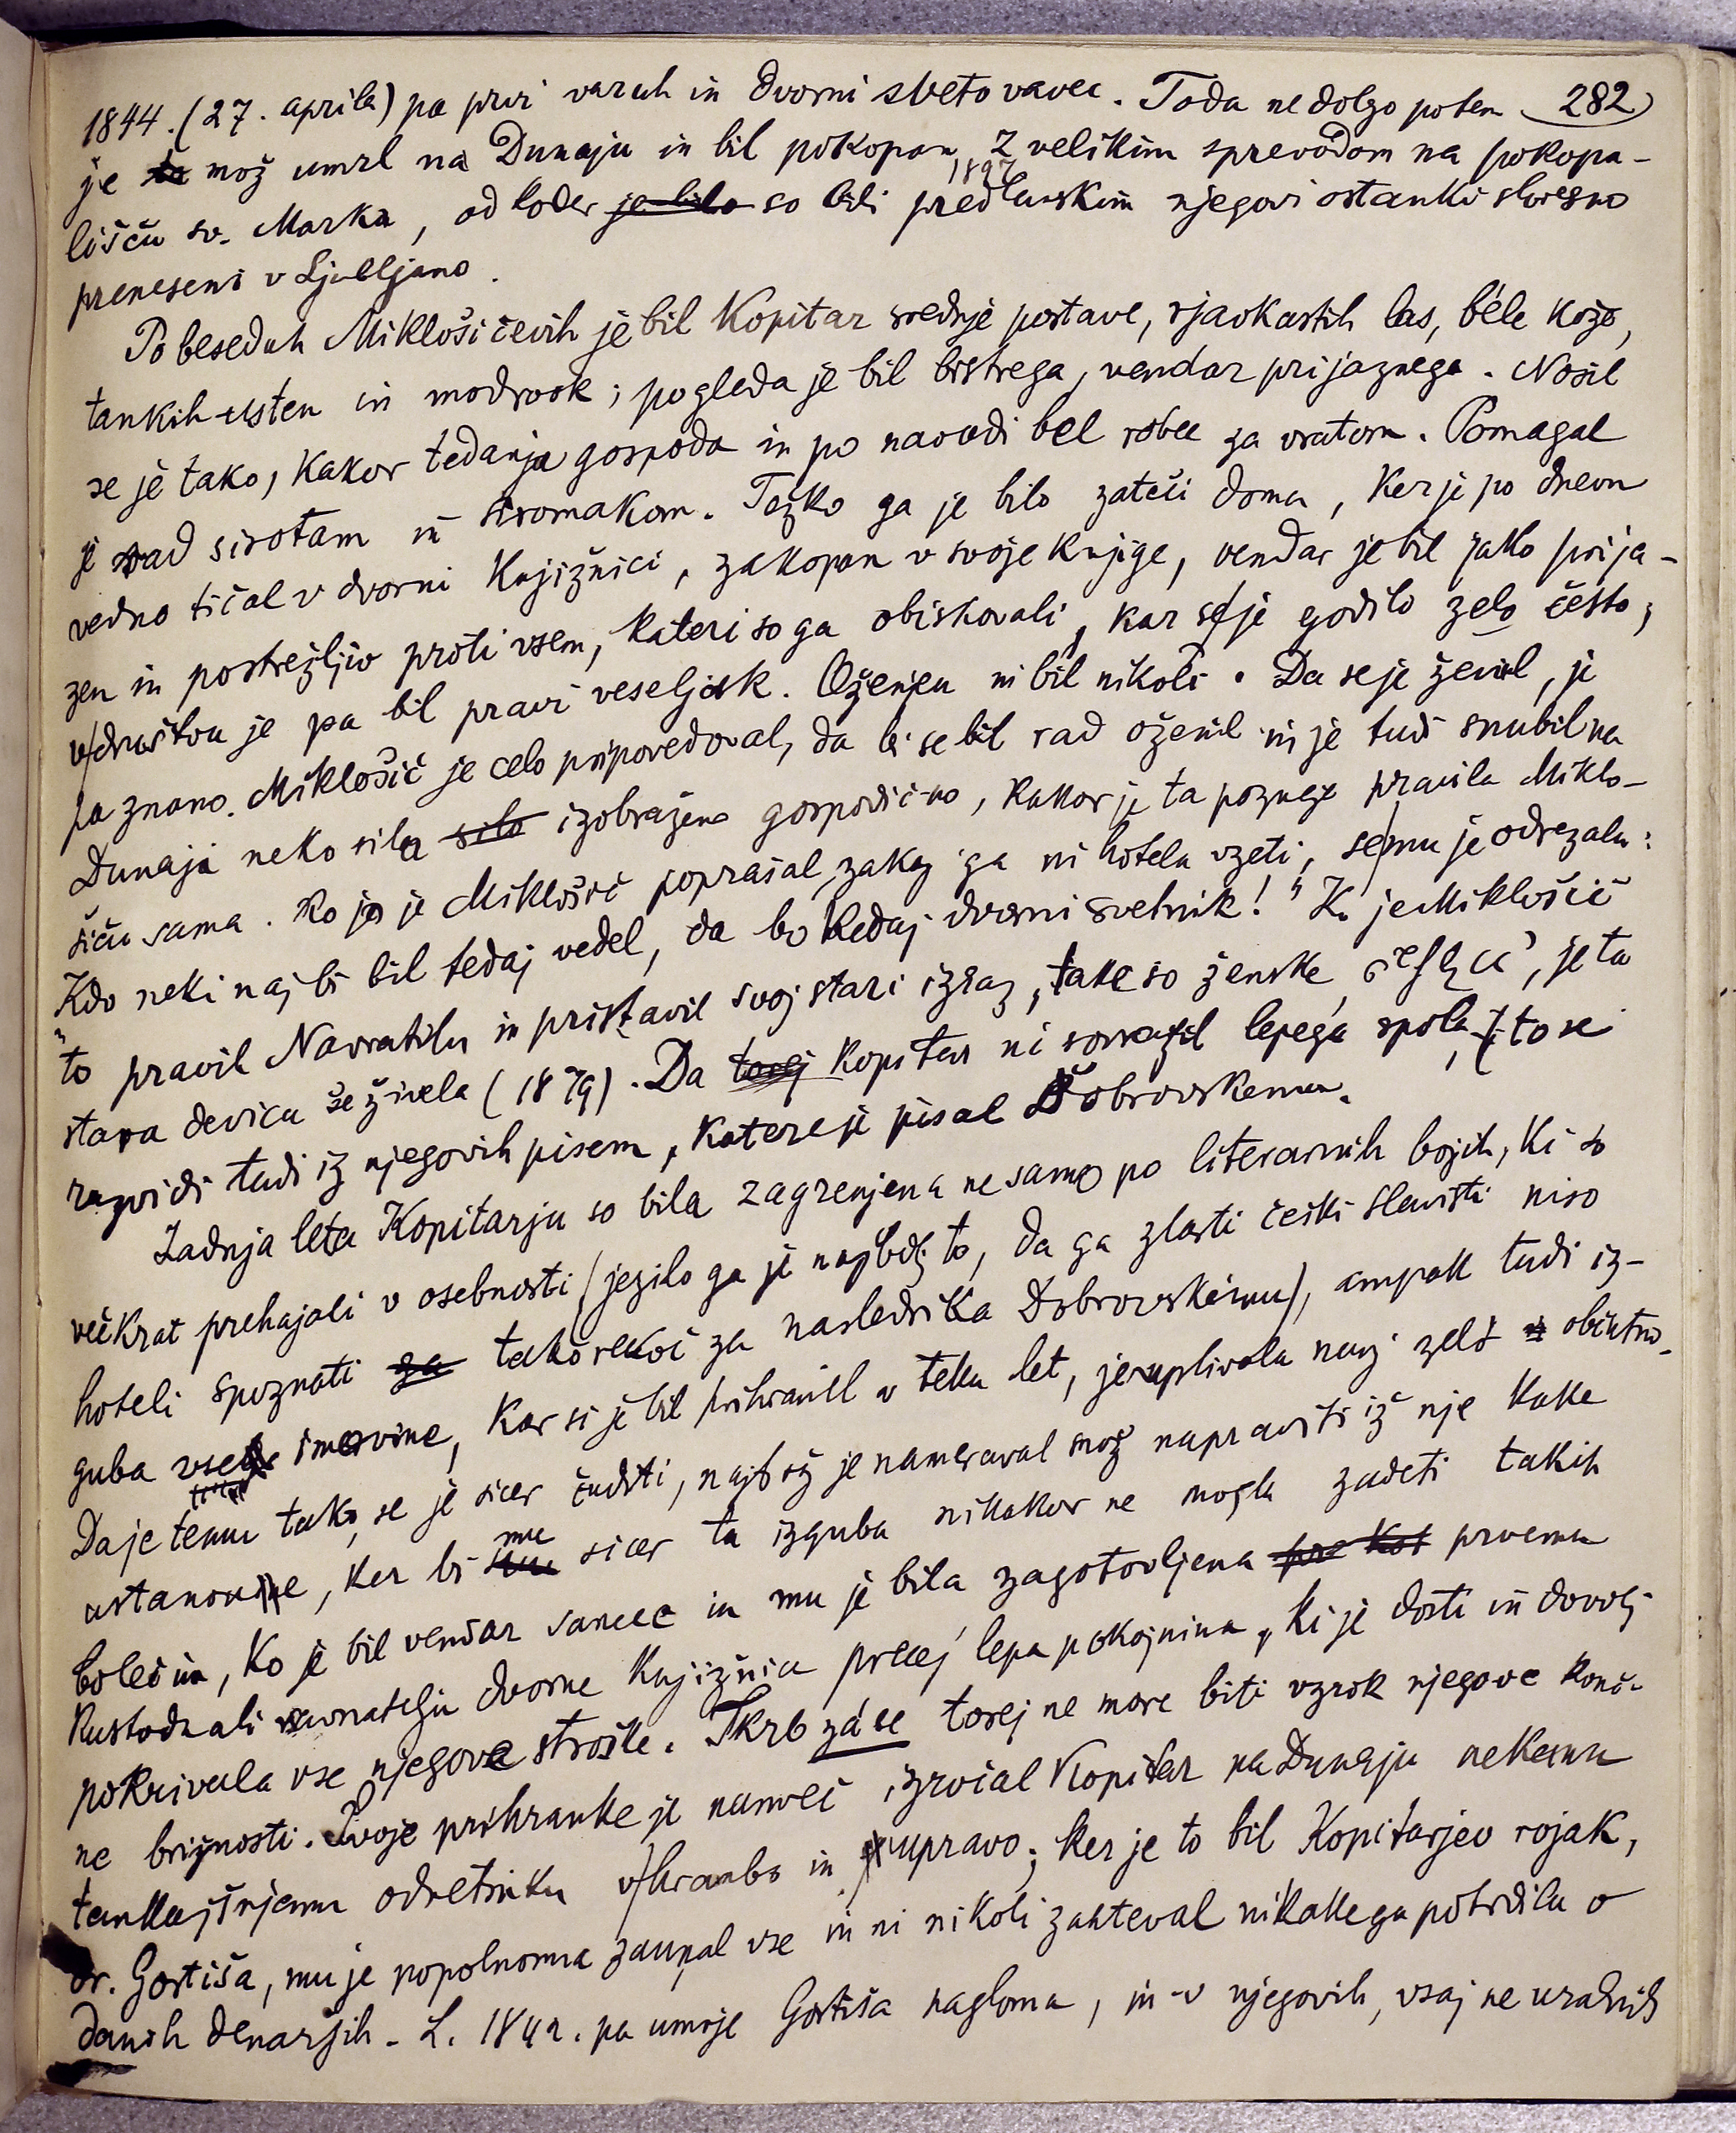 1844. (27. aprila) pa prvi varuh in dvorni svetovavec. Toda ne dolgo potem 282
je mož umrl na Dunaju in bil pokopan z velikim sprevodom na pokopa-
lišču sv. Marka, od koder so bili predlanskim 1897 njegovi ostanki slovesno
preneseni v Ljubljano.
Po besedah Miklošičevih je bil Kopitar srednje postave, rjavkastih las, béle kože,
tankih usten in modrook; pogleda je bil bistrega, vendar prijaznega. Nosil
se je tako, kakor tedanja gospoda in po navadi bel robec za vratom. Pomagal
je rad sirotam in siromakom. Težko ga je bilo zateči doma, ker je po dnevu
vedno tičal v dvorni knjižnici, zakopan v svoje knjige, vendar je bil jako prija-
zen in postrežljiv proti vsem, kateri so ga obiskovali, kar se je godilo zelo često;
v društvu je pa bil pravi veseljak. Oženjen ni bil nikoli. Da se je ženil, je
pa znano. Miklošič je celo pripovedoval, da bi se bil rad oženil in je tudi snubil na
Dunaju neko sila izobraženo gospodično, kakor je ta pozneje pravila Miklo-
šiču sama. Ko jo je Miklošič poprašal, zakaj ga ni hotela vzeti, se mu je odrezala:
"Kdo neki naj bi bil tedaj vedel, da bo kedaj dvorni svetnik!" Ko je Miklošič
to pravil Navratilu in pristavil svoj stari izraz, "take so ženske", je ta
stara devica še živela (1879). Da Kopitar ni sovražil lepega spola, to se
razvidi tudi iz njegovih pisem, katere je pisal Dobrovskemu.
Zadnja leta Kopitarju so bila zagrenjena ne samo po literarnih bojih, ki so
večkrat prehajali v osebnosti (jezilo ga je najbolj to, da ga zlasti češki slavisti niso
hoteli spoznati takorekoč za naslednika Dobrovskemu), ampak tudi iz-
guba vse imovine, kar si je bil prihranil v teku let, je uplivala nanj zelo občutno.
Da je temu tako, se je sicer čuditi, najbrž je nameraval mož napraviti iz nje kake
ustanovine, ker bi mu sicer ta izguba nikakor ne mogla zadeti takih
bolečin, ko je bil vendar samec in mu je bila zagotovljena prvemu
kustodu ali ravnatelju dvorne knjižnice precej lepa pokojnina, ki je dosti in dovolj
pokrivala vse njegove stroške. Skrb zá se torej ne more biti vzrok njegove konč-
ne brižnosti. Svoje prihranke je namreč izročal Kopitar na Dunaju nekemu
tamkajšnjemu odvetniku v hrambo in upravo; ker je to bil Kopitarjev rojak,
dr. Gostiša, mu je popolnoma zaupal vse in ni nikoli zahteval nikakega potrdila o
danih denarjih. L. 1842. pa umrje Gostiša nagloma, in v njegovih, vsaj ne uradnih